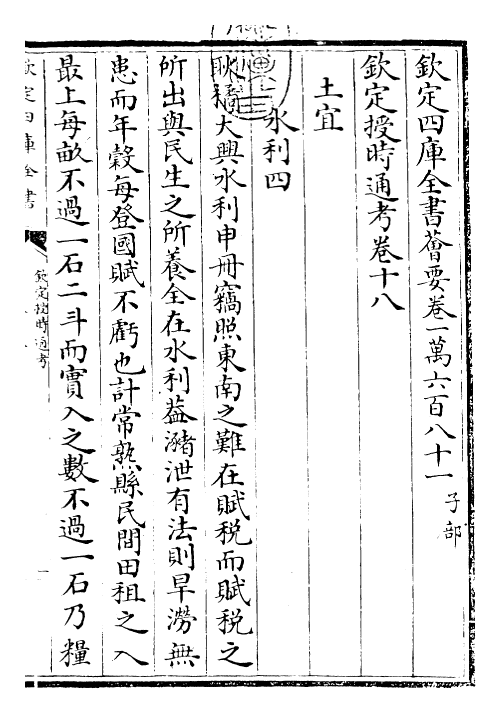 欽定四庫全書薈要卷一萬六百八十一 子部
欽定授時通考卷十八
土宜
水利四
耿橘大興水利申冊竊照東南之難在賦税而賦税之
所出與民生之所養全在水利葢瀦泄有法則旱澇無
患而年穀每登國賦不虧也計常熟縣民間田租之入
最上每畝不過一石二斗而實入之數不過一石乃糧
欽定四庫全書
欽定授時通考